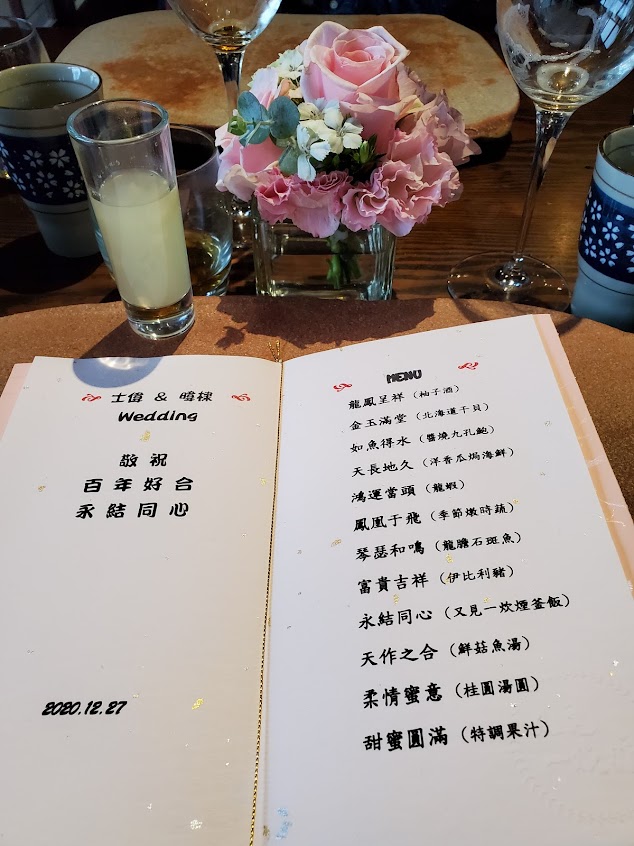 士偉 & 暐棣
Wedding
敬祝
百年好合
永結同心
2020.12.27
MENU
龍鳳呈祥（柚子酒）
金玉滿堂（北海道干貝）
如魚得水（醬燒九孔鮑）
天長地久（洋香瓜焗海鮮）
鴻運當頭（龍蝦）
鳳凰于飛（季節燉時蔬）
琴瑟和鳴（龍膽石斑魚）
富貴吉祥（伊比利豬）
永結同心（又見一炊煙釜飯）
天作之合（鮮菇魚湯）
柔情蜜意（桂圓湯圓）
甜蜜圓滿（特調果汁）